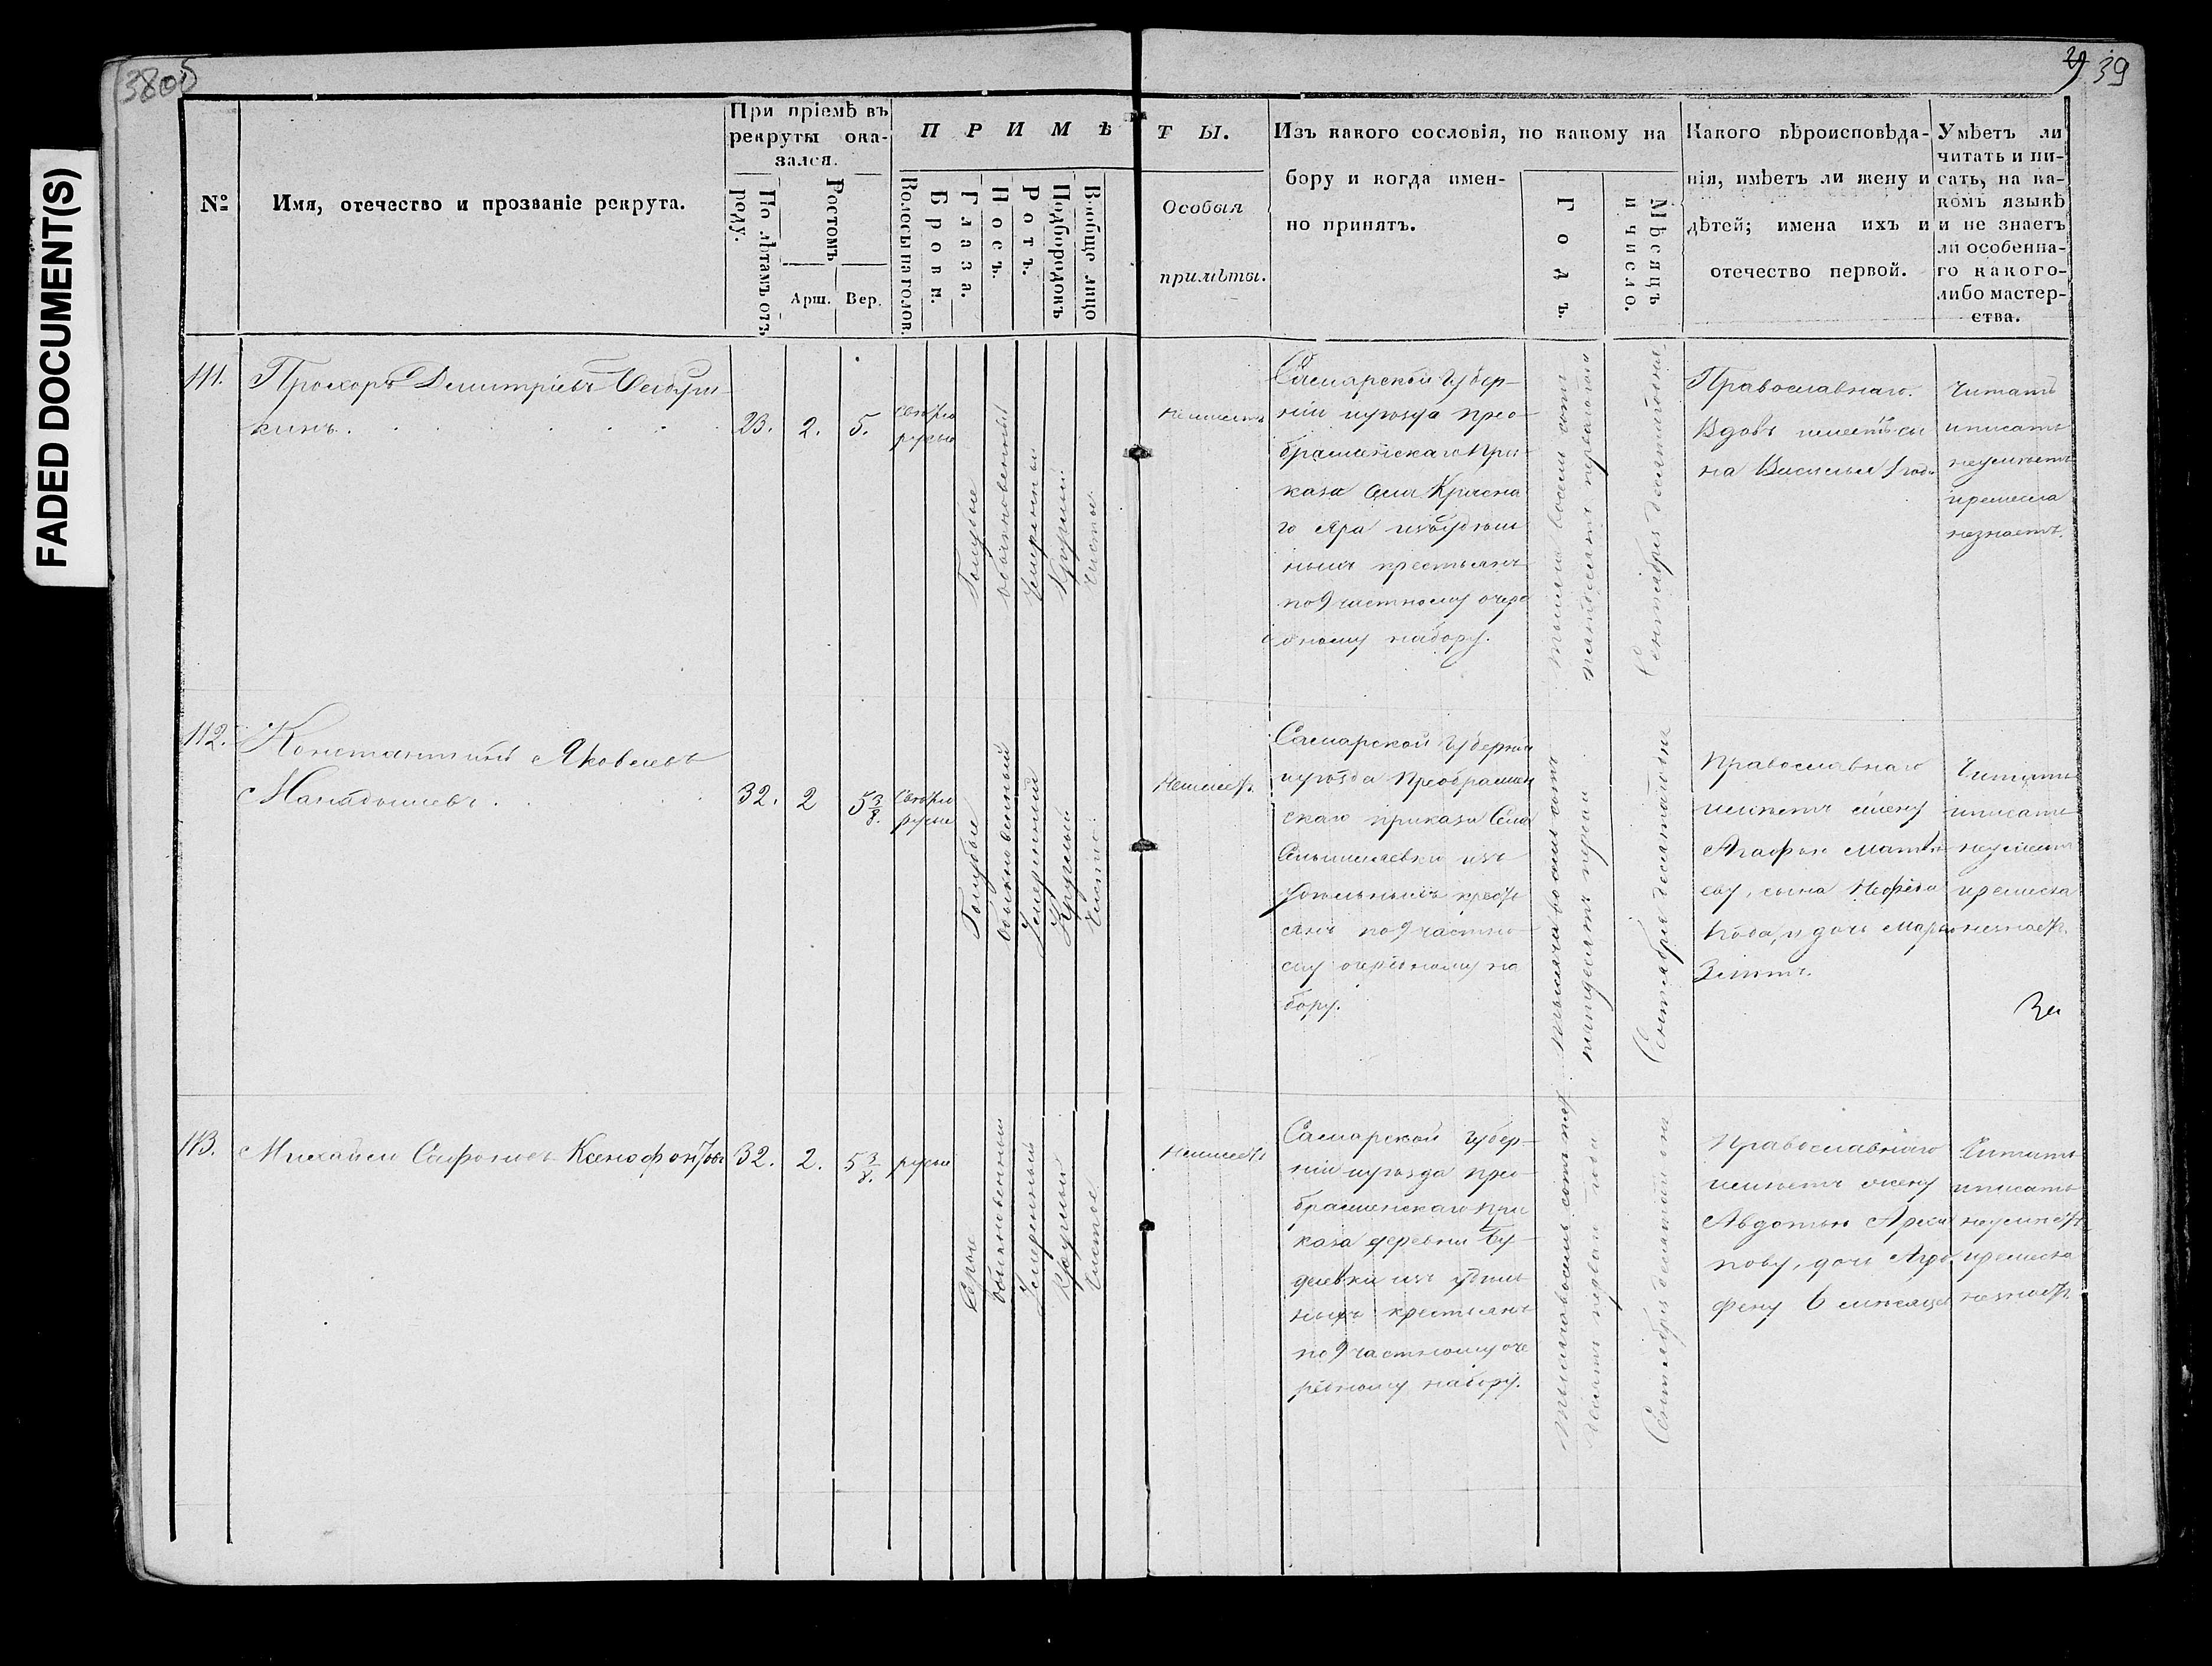 FADED DOCUMENT(S)
39
№
Имя, отечество и прозваніе рекрута.
При пріемѣ въ
рекруты ока-
зался.
По лѣтамъ отъ
роду.
Ростомъ
Арш.
Вер.
ПРИМѢ
Волосы на голов.
Брови.
Глаза.
Носъ.
Ротъ.
Подбородокъ
Вообще лицо
ТЫ.
Особыя
примѣты.
Изъ какого сословія, по какому на
бору и когда имен-
но принятъ.
Годъ.
Мѣсяцъ
и число.
Какого вѣроисповѣда-
нія, имѣетъ ли жену и
дѣтей; имена ихъ и
отечество первой.
Умѣетъ ли
читать и пи-
сать, на ка-
комъ языкѣ
и не знаетъ
ли особенна-
го какого-
либо мастер-
ства.
111.
Прохоръ Дмитріевъ
кинъ.
23.
2.
5.
свѣтло
русые
Голубые
обыкновенный
Умѣренный
Круглый
Чистое
Неимѣетъ
Самарской Губер-
ніи иуѣзда прео-
браженскаго При-
каза Села Красна
го Яра изъ удѣль
ныхъ крестьянъ
по 9 частному очере
дному набору.
тысяча восемь сотъ
пятьдесятъ перваго года
Сентября десятаго дня
Православнаго.
Вдовъ имеетъ сы
на Василья 1 года
Читать
иписать
неумѣетъ
иремесла
незнаетъ.
112.
Константинъ Яковлевъ
32.
2
5 3/8.
Свѣтло
русые
Голубые
обыкновенный
Умѣренный
Круглый
Чистое.
Неимѣетъ
Самарской Губерніи
иуѣзда Преображен
скаго приказа Села
изъ
Удѣльныхъ кресть
янъ по 9 частно
му очередному на
бору.
тысяча восемь сотъ
пятдесятъ перваго
Сентября десятаго дня
Православнаго
имѣетъ жену
Агафью Матвѣ
еву, сына
и дочь Марью
3 лѣтъ.
Читать
иписать
неумѣетъ
иремесла
незнаетъ.
113.
Михайло Сафоновъ Ксенофонтовъ
32.
2.
5 3/8.
русые
Серые
обыкновенный
Умѣренный
Круглый
Чистое
Неимѣетъ
Самарской Губер-
ніи иуѣзда прео-
браженскаго при
каза деревни Бу-
изъ удѣль
ныхъ крестьянъ
по 9 частному оче
редному набору.
тысяча восемь сотъ пять
десятъ перваго года
Сентября десятаго дня
Православнаго
имѣетъ жену
Авдотью Архи
пову, дочь Агра
фену 6 мѣсяцевъ
Читать
иписать
неумѣетъ
иремесла
незнаетъ.